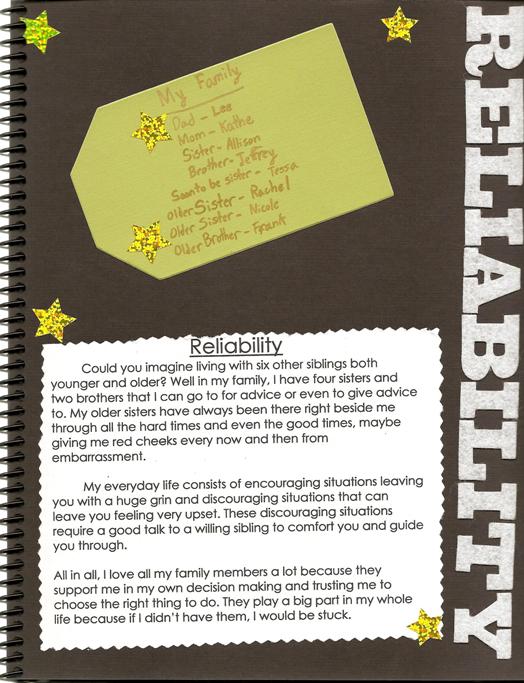 My Family
Dad - Lee
Mom - Kathe
Sister - Allison
Brother - Jeffrey
Soon to be sister - Tessa
Older Sister - Rachel
Older Sister - Nicole
Older Brother - Frank
RELIABILITY
Reliability
Could you imagine living with six other siblings both
younger and older? Well in my family, I have four sisters and
two brothers that I can go to for advice or even to give advice
to. My older sisters have always been there right beside me
through all the hard times and even the good times, maybe
giving me red cheeks every now and then from
embarrassment.
My everyday life consists of encouraging situations leaving
you with a huge grin and discouraging situations that can
leave you feeling very upset. These discouraging situations
require a good talk to a willing sibling to comfort you and guide
you through.
All in all, I love all my family members a lot because they
support me in my own decision making and trusting me to
choose the right thing to do. They play a big part in my whole
life because if I didn't have them, I would be stuck.